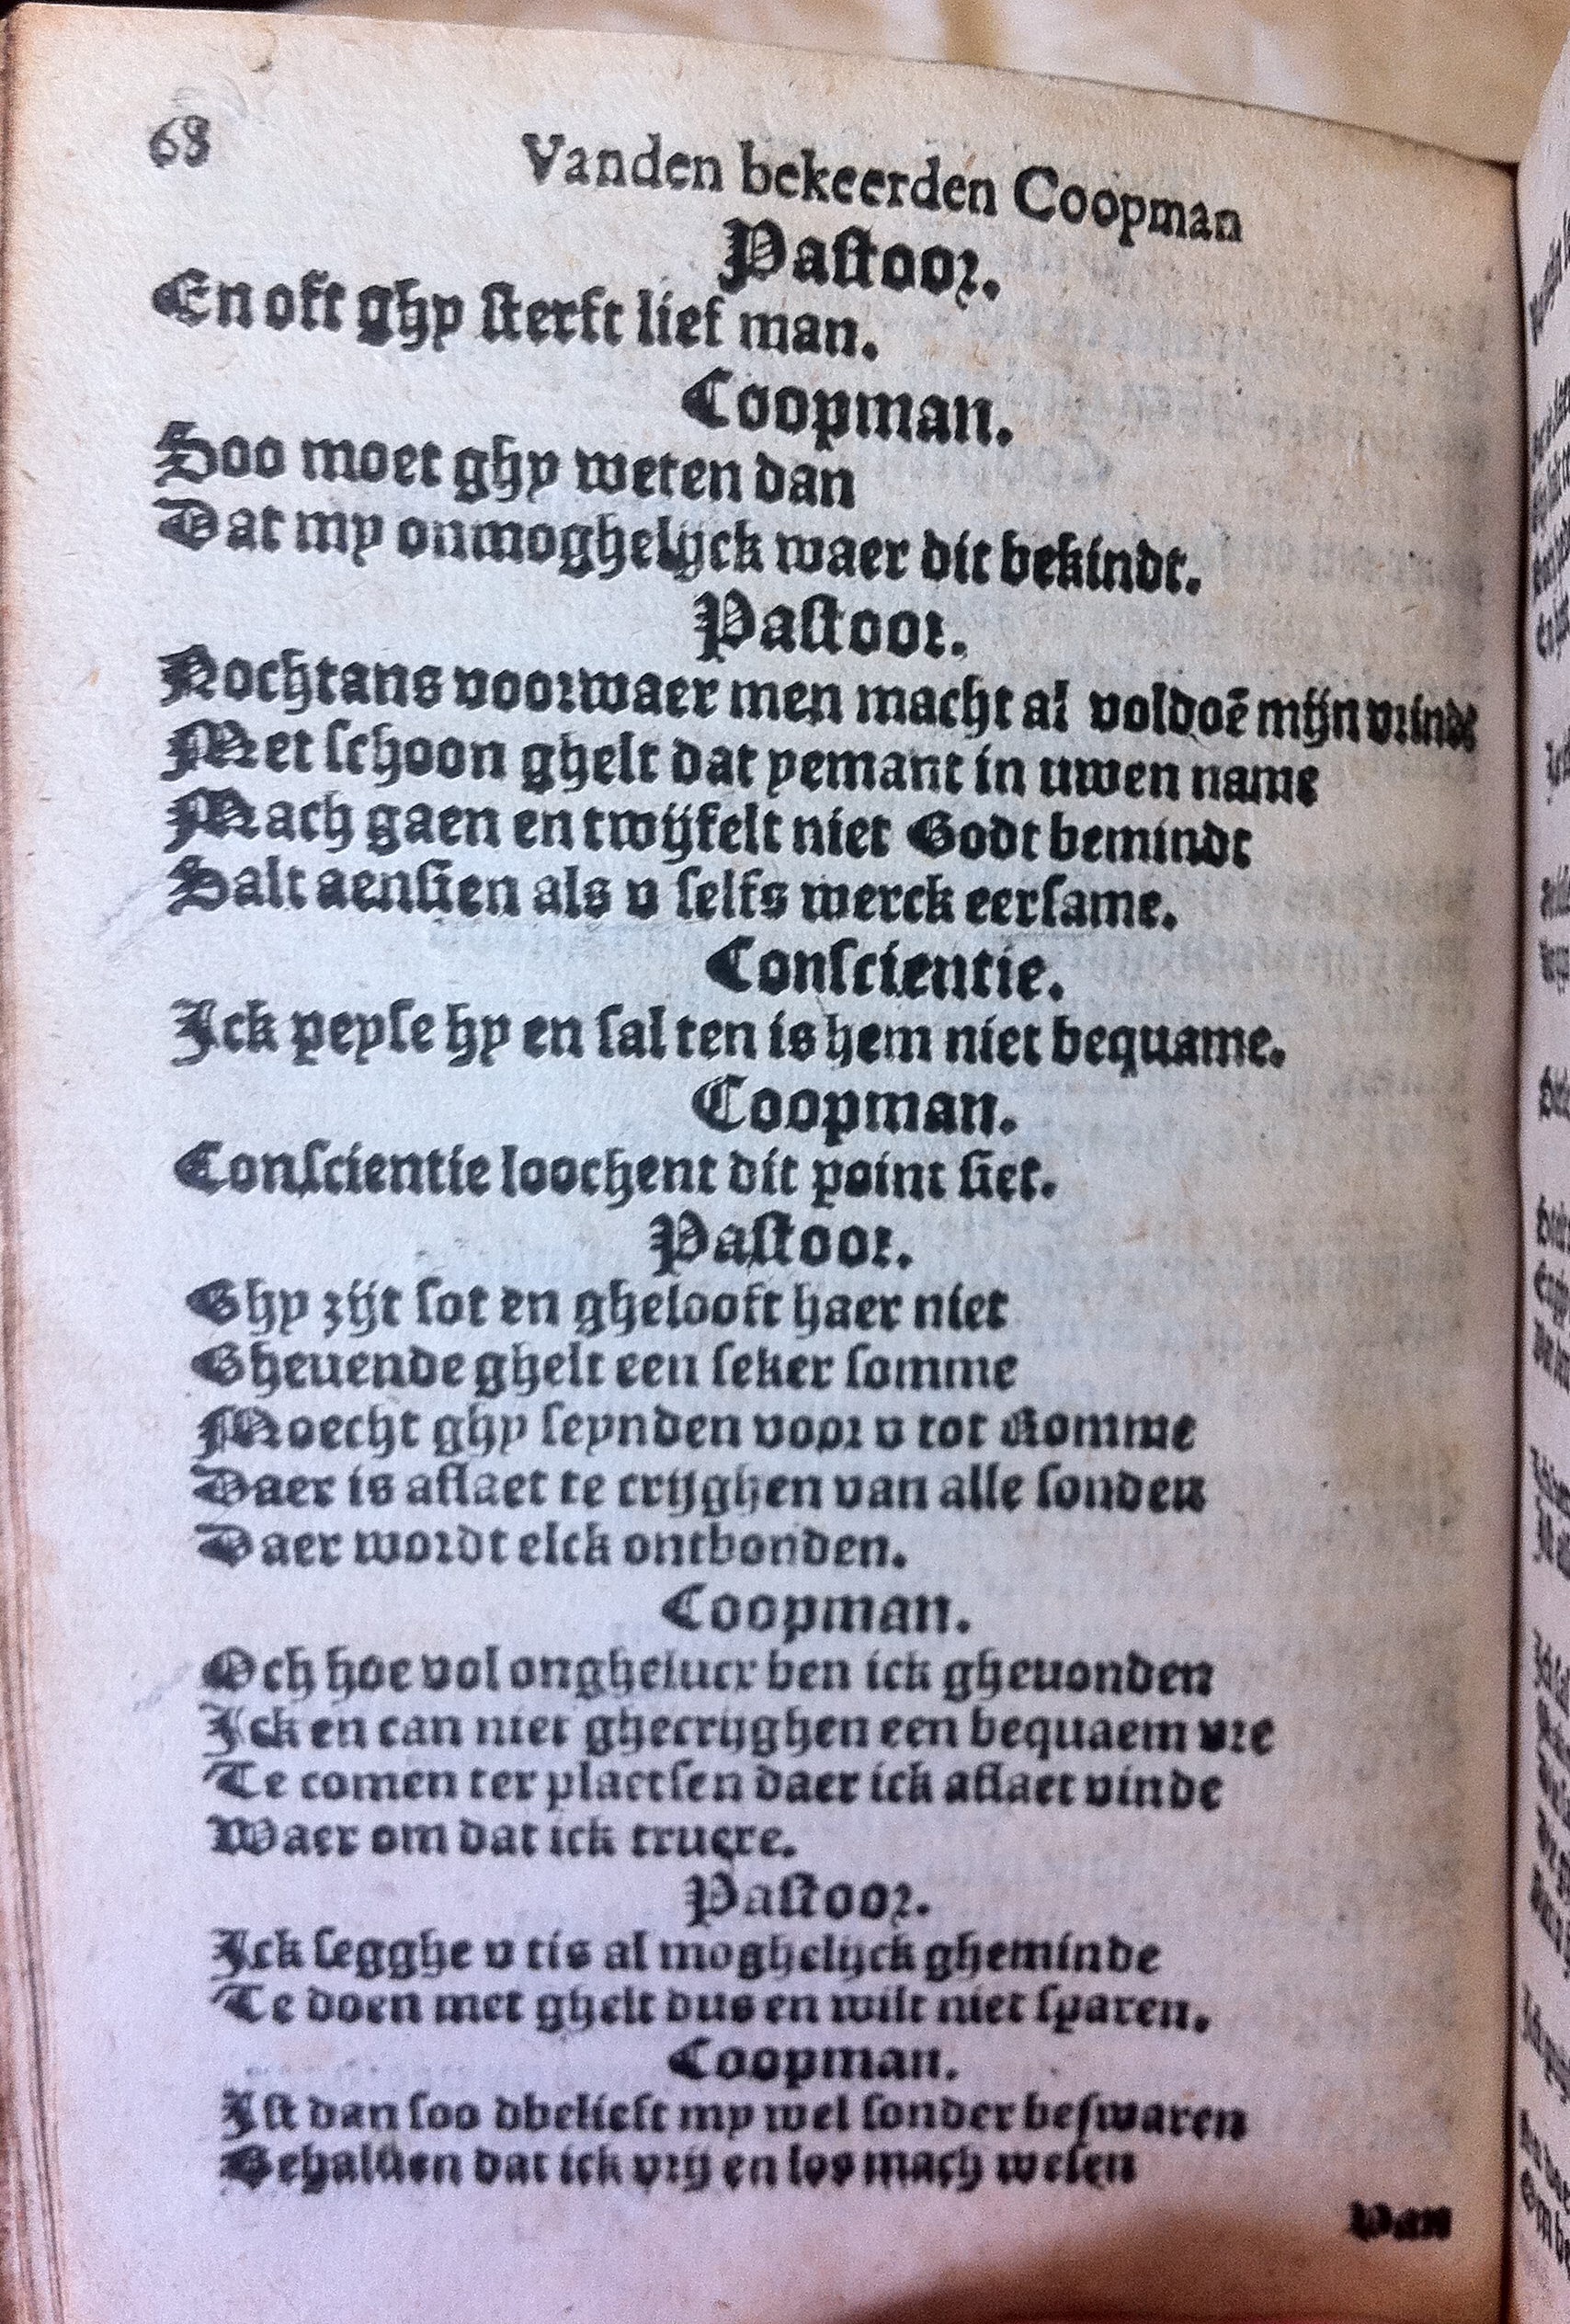 68
Vanden bekeerden Coopman
Pastoor.
En oft ghy sterft lief man.
Coopman.
Soo moet ghy weten dan
Dat my onmoghelijck waer dit bekindt.
Pastoor.
Nochtans voorwaer men macht al voldoē mijn vrindt
Met schoon ghelt dat yemant in uwen name
Mach gaen en twijfelt niet Godt bemindt
Salt aensien als v selfs werck eersame.
Conscientie.
Ick peyse hy en sal ten is hem niet bequame.
Coopman.
Conscientie loochent dit point siet.
Pastoor.
Ghy zijt sot en ghelooft haer niet
Gheuende ghelt een seker somme
Moecht ghy seynden voor v tot Romme
Daer is aflaet te crijghen van alle sonden
Daer wordt elck ontbonden.
Coopman.
Och hoe vol onghelucx ben ick gheuonden
Ick en can niet ghecrijghen een bequaem vre
Te comen ter plaetsen daer ick aflaet vinde
Waer om dat ick truere.
Pastoor.
Ick segghe v tis al moghelijck gheminde
Te doen met ghelt dus en wilt niet sparen.
Coopman.
Ist dan soo dbelieft my wel sonder beswaren
Behalden dat ick vrij en los mach wesen
Van